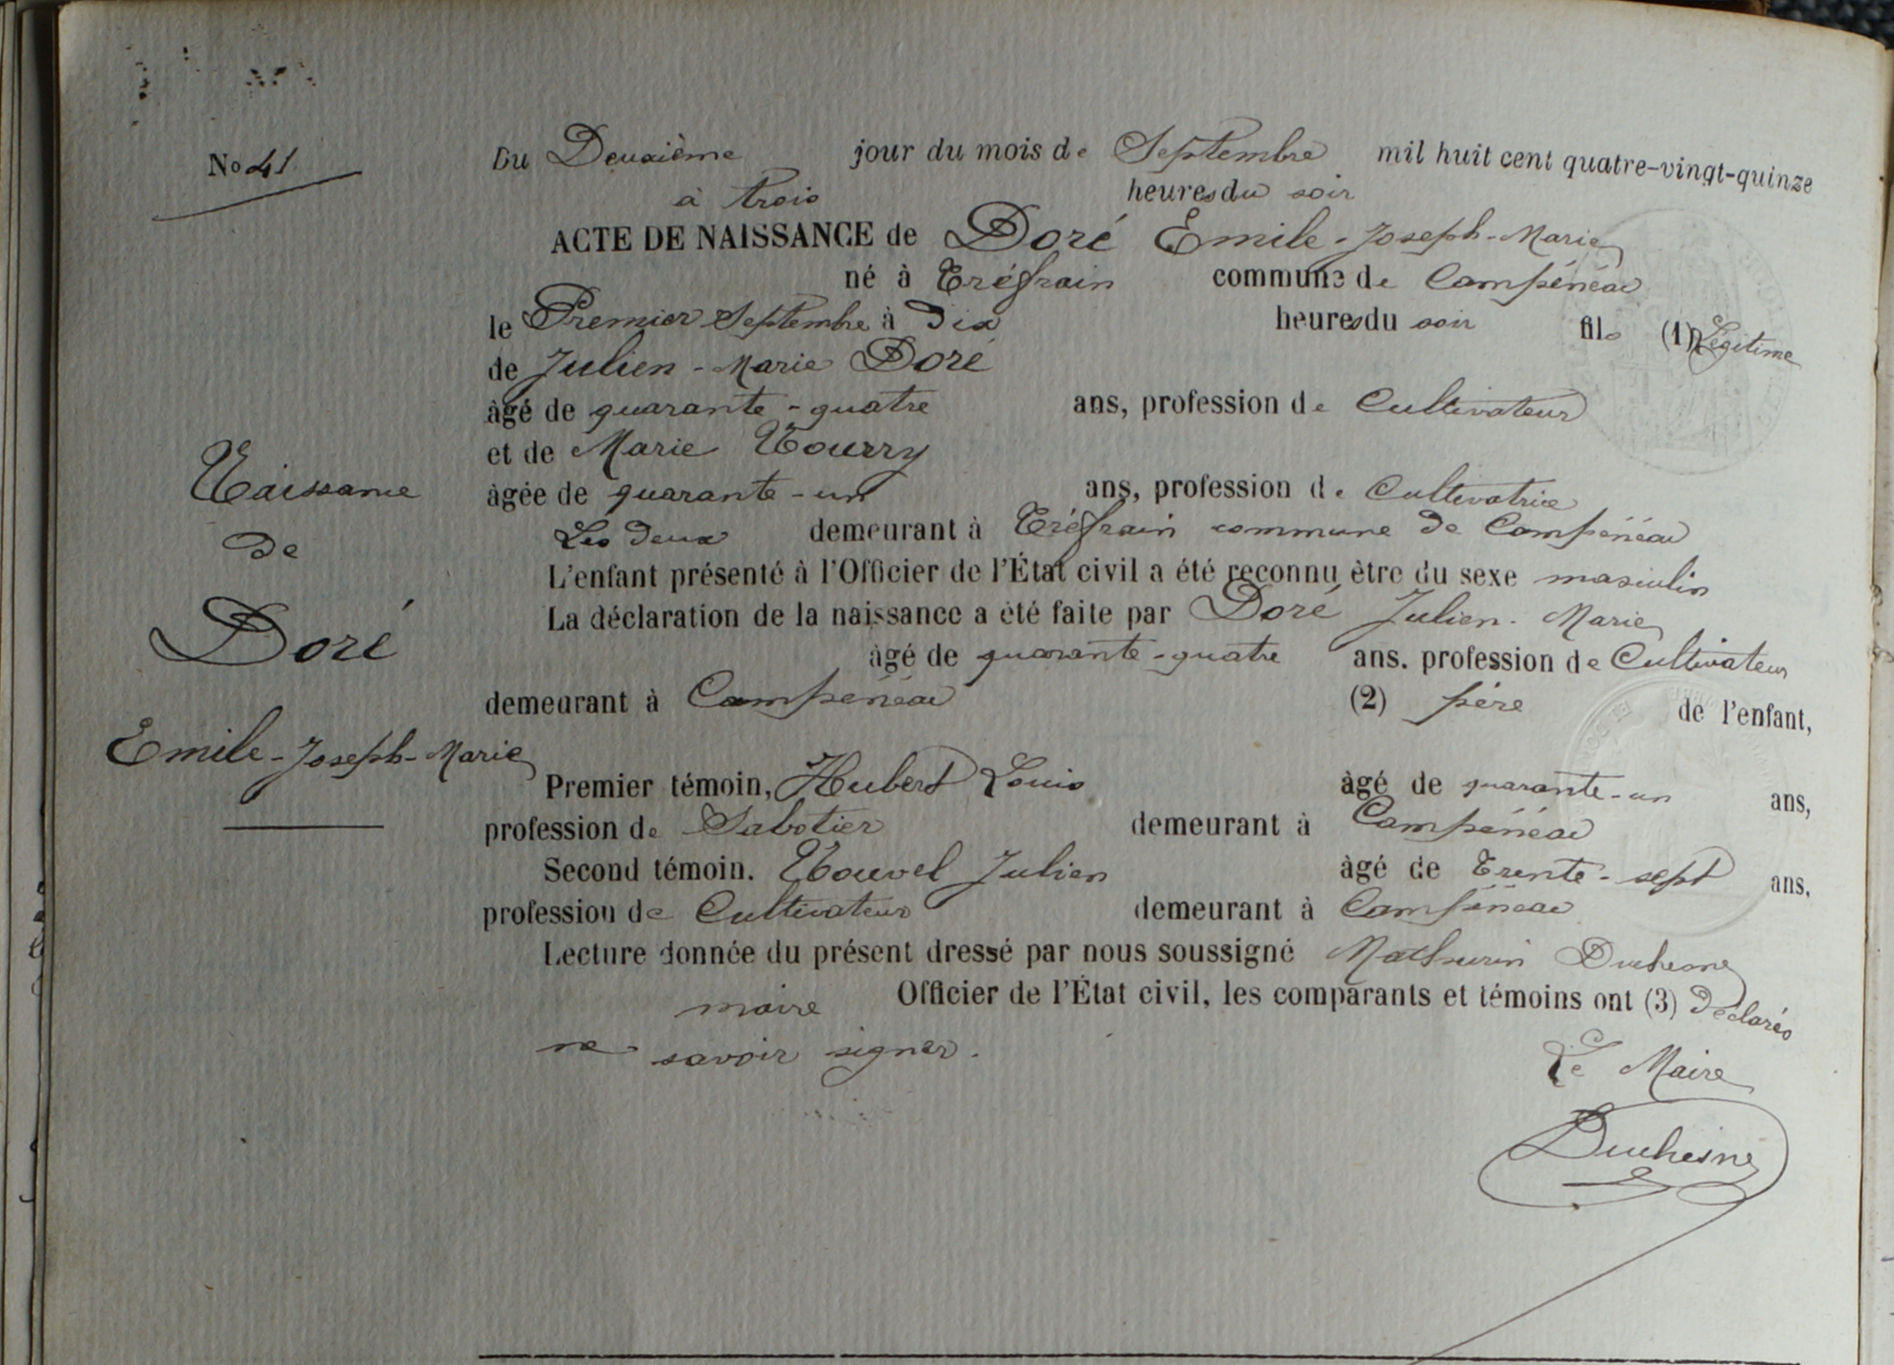 No 41
Du Deuxième jour du mois de Septembre mil huit cent quatre-vingt-quinze
à trois heures du soir
ACTE DE NAISSANCE de Doré Emile-Joseph-Marie
né à Tréfrain commune de Campénéac
le Premier Septembre à Dix heures du soir fils (1) Légitime
de Julien-Marie Doré
âgé de quarante-quatre ans, profession de Cultivateur
et de Marie Nourry
âgée de quarante-un ans, profession de Cultivatrice
Les deux demeurant à Tréfrain commune de Campénéac
L'enfant présenté à l'Officier de l'État civil a été reconnu être du sexe masculin
La déclaration de la naissance a été faite par Doré Julien-Marie
âgé de quarante-quatre ans. profession de Cultivateur
demeurant à Campénéac (2) père de l'enfant,
Premier témoin, Hubert Louis âgé de quarante-un ans,
profession de Sabotier demeurant à Campénéac
Second témoin. Nouvel Julien âgé de Trente-sept ans,
profession de Cultivateur demeurant à Campénéac
Lecture donnée du présent dressé par nous soussigné Mathurin Duchesne
maire Officier de l'État civil, les comparants et témoins ont (3) Déclarés
ne savoir signer.
Le Maire
Duchesne
Naissance
de
Doré
Emile-Joseph-Marie